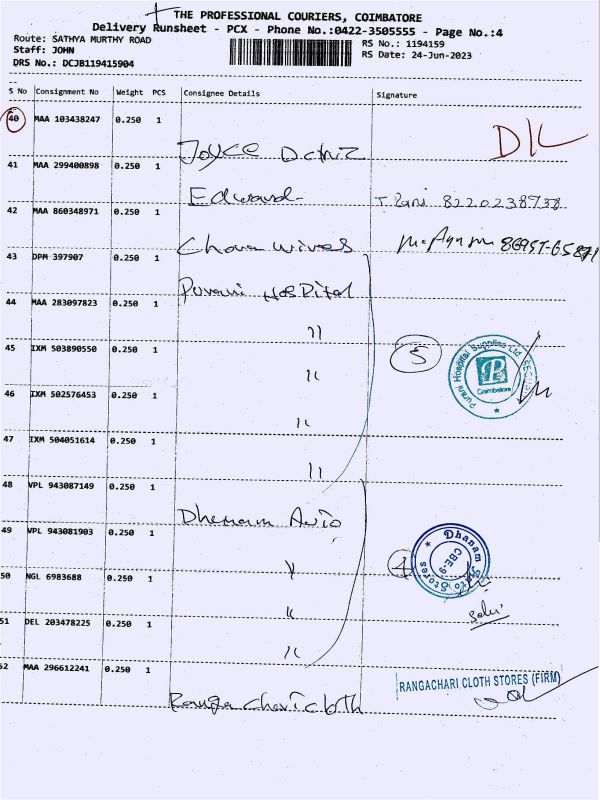 THE PROFESSIONAL COURIERS, COIMBATORE
Delivery Runsheet - PCX - Phone No.:0422-3505555 - Page No.:4
Route: SATHYA MURTHY ROAD
RS No.: 1194159
Staff: JOHN
RS Date: 24-Jun-2023
DRS No.: DCJB119415904
S No Consignment No Weight PCS Consignee Details Signature
40 MAA 103438247 0.250 1
D/L
Joyce
41 MAA 299400898 0.250 1
Edward
8220238738
42 MAA 860348971 0.250 1
43 DPM 397907 0.250 1
Purani Hospital
44 MAA 283097823 0.250 1
"
45 IXM 503890550 0.250 1
5
Purani Hospital Supplies Ltd
P
Coimbatore
"
46 IXM 502576453 0.250 1
"
47 IXM 504051614 0.250 1
"
48 VPL 943087149 0.250 1
Dhanam Auto
49 VPL 943081903 0.250 1
4
Dhanam Auto Stores
CBE-9
"
50 NGL 6983688 0.250 1
"
51 DEL 203478225 0.250 1
"
52 MAA 296612241 0.250 1
RANGACHARI CLOTH STORES (FIRM)
Ranga chari cloth